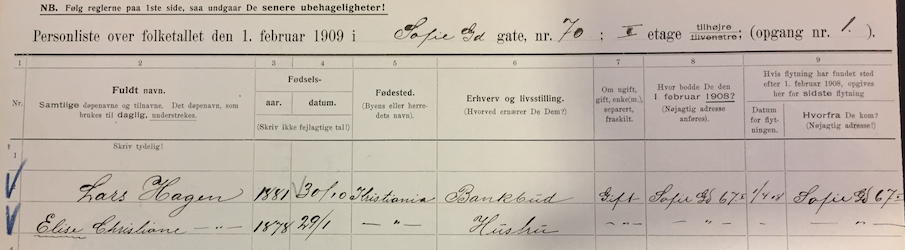 NB. Følg reglerne paa 1ste side, saa undgaar De senere ubehageligheter!
Personliste over folketallet den 1. februar 1909 i Sofie Gd gate, nr. 70 ; I etage tilhøjre tilvenstre; (opgang nr. 1. ).
1 2 3 4 5 6 7 8 9
Nr. Fuldt navn. Samtlige døpenavne og tilnavne. Det døpenavn, som brukes til daglig, understrekes.
Fødsels- aar. datum. (Skriv ikke fejlagtige tal!)
Fødested. (Byens eller herredets navn).
Erhverv og livsstilling. (Hvorved ernærer De Dem?)
Om ugift, gift, enke(m.), separert, fraskilt.
Hvor bodde De den 1 februar 1908? (Nøjagtig adresse anføres).
Hvis flytning har fundet sted efter 1. februar 1908, opgives her for sidste flytning
Datum for flytningen. Hvorfra De kom? (Nøjagtig adresse!)
Skriv tydelig!
1
Lars Hagen 1881 30/10 Kristiania Bankbud Gift Sofie Gd 67 1/4 08 Sofie Gd 67
Elise Christiane —"— 1878 29/1 —"— Hustru " —"— " —"—